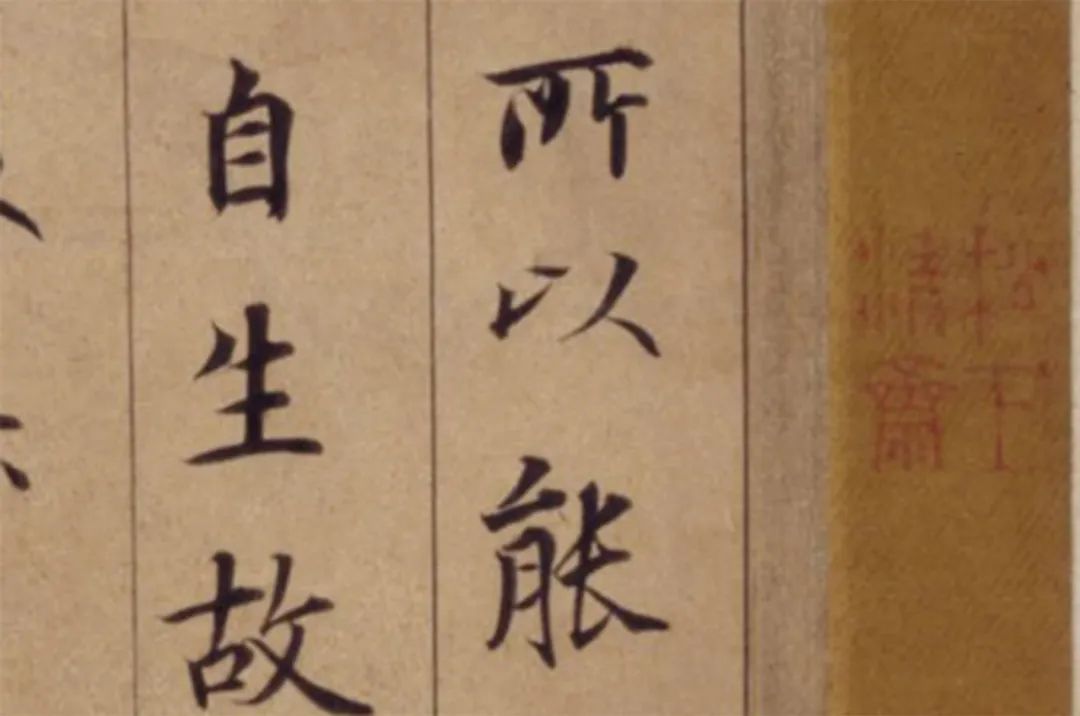 所以能
自生故